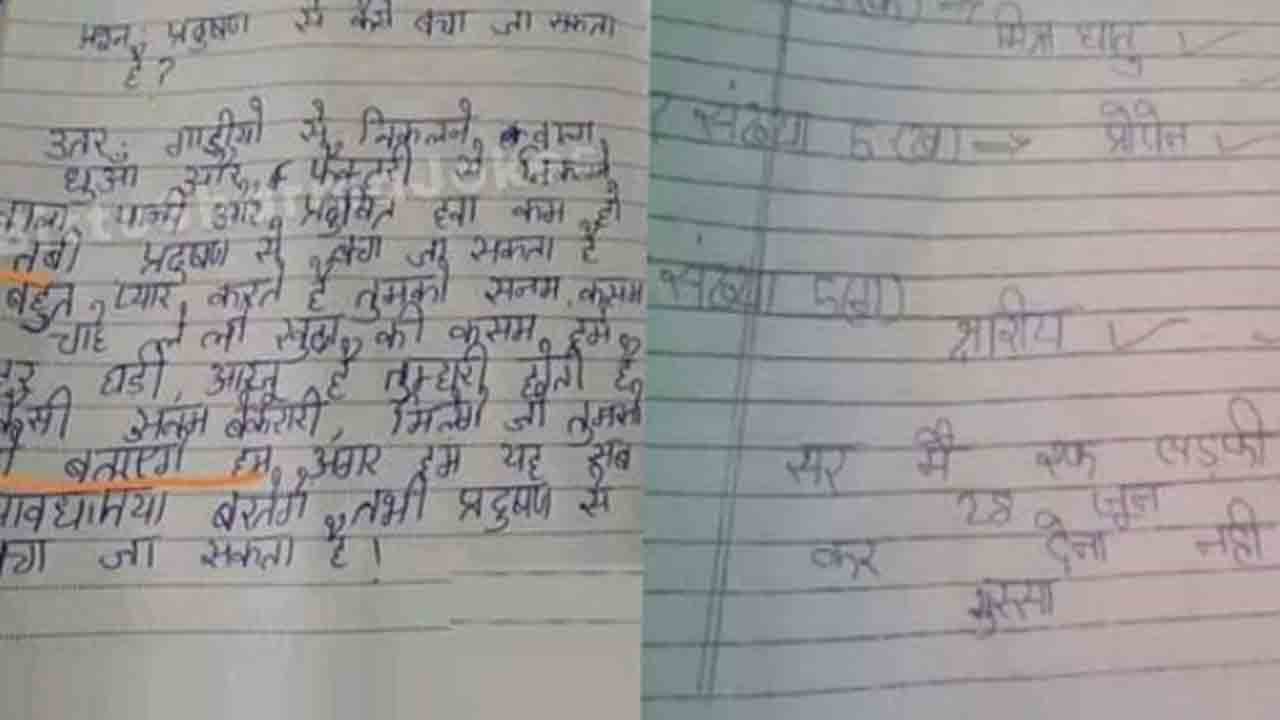 प्रश्न: प्रदुषण से कैसे बचा जा सकता
है?
उतर: गाडीयो से निकलने वाला
धुआँ और फैक्टरी से निकलने
वाला पानी और प्रदुषित हवा कम हो
तबी प्रदुषण से बचा जा सकता है
बहुत प्यार करते है तुमको सनम कसम
चाहे ले लो खुदा की कसम हमे
हर घडी आरजू है तुम्हारी होती है
कैसी सनम बेकरारी, मिलेंगे जो तुमसे
तो बताएंगे हम, अगर हम यह सब
सावधानियां बरतेंगे तभी प्रदुषण से
बचा जा सकता है।
मिश्र धातु
संख्या 5 (ब) → प्रोपेन
संख्या 5(स)
क्षारीय
सर मैं एक लड़की
28 जून
कर देना नही
गुस्सा